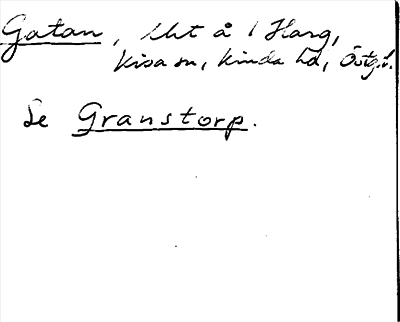 Gatan, lht å 1 Harg,
Kisa sn, Kinda hd, Östg. l.
Se Granstorp.